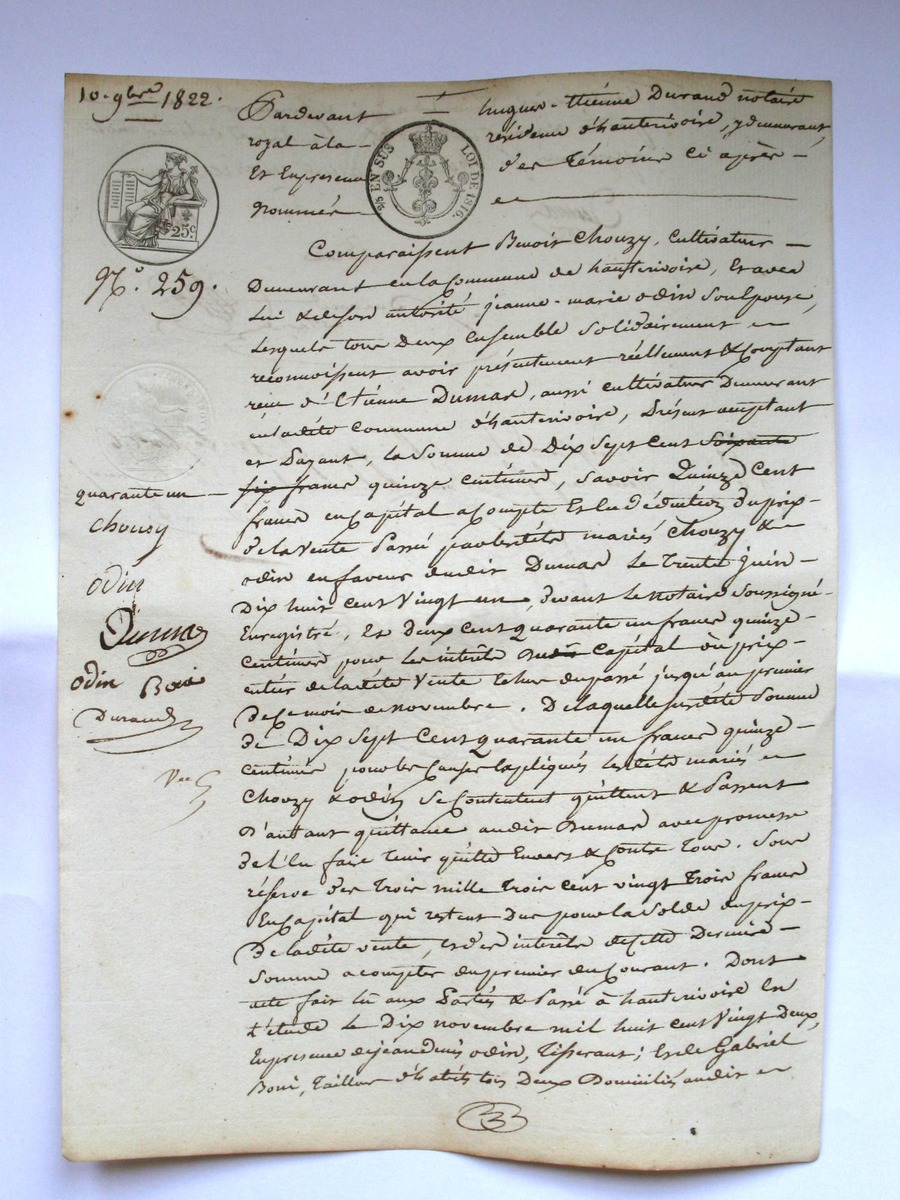 10. 9bre 1822.
Pardevant hugues-thiénne Durand notaire
royal à la résidence d'hauterivoire, y demeurant,
Et En presence des témoins ci après
Nommés
5/5 EN SUS LOI DE 1816.
25c
N.o 259.
Comparaissent Benoit Chouzy, Cultivateur
Demeurant en la Commune de hauterivoire, Et avec
lui & de son autorité jeanne-marie odin Son Epouse,
Lesquels tous deux Ensemble Solidairement
reconnoissent avoir présentement réellement & Comptant
reçu d'Etienne Dumas, aussi cultivateur Demeurant
en la dite Commune d'hauterivoire, présent acceptant
et payant, la Somme de Dix Sept Cent Soixante
six francs quinze centimes, Savoir Quinze Cent
francs en Capital a Compte Et en déduction du prix
de la Vente Passée par lesdits mariés Chouzy &
odin en faveur dudit Dumas Le Trente juin
Dix huit cent Vingt un, devant le notaire Soussigné
Enregistré, Et Deux Cent quarante un francs quinze
Centimes pour les intérêts dudit Capital ou prix
entier de la dite Vente Echus du passé jusqu'au premier
de Ce mois de novembre. De laquelle susdite Somme
de Dix Sept Cent quarante un francs quinze
Centimes pour les Causes Expliquées lesdits mariés
Chouzy & odin Se Contentent quittent & Passent
D'autant quittance audit Dumas avec promesse
de l'En faire tenir quitte Envers & Contre Tous. Sous
réserve des Trois mille Trois Cent vingt Trois francs
En Capital qui restent Dus pour la Solde du prix
De la dite vente, et des intérêts de Cette Dernière
Somme a compter du premier du Courant. Dont
acte fait lu aux Parties & Passé à hauterivoire En
l'étude Le Dix novembre mil huit cent Vingt Deux,
En presence de jean denis odin, Tisserant; Et de Gabriel
Boni, Tailleur d'habits tous Deux Domiciliés audit
quarante un
Chouzy
odin
Dumas
odin Boni
Durand